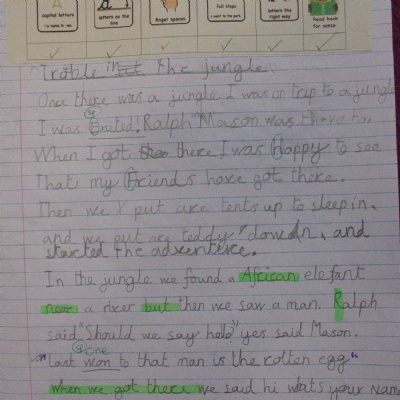 capital letters
letters on the line
finger spaces
full stops
I went to the park.
letters the right way
Read back for sense
Troble in the jungle.
Once there was a jungle I was on trip to a jungle
I was Exited! Ralph Mason was there too
When I got there I was Happy to see
That my Friends have got there.
Then we put are tents up to sleep in,
and we put are teddy down, and
started the adventure.
In the jungle we found a African elefant
near a river but then we saw a man. Ralph
said "Should we say hello" yes said Mason.
one
"Last mon to that man is the rotten egg"
When we got there we said hi whats your name